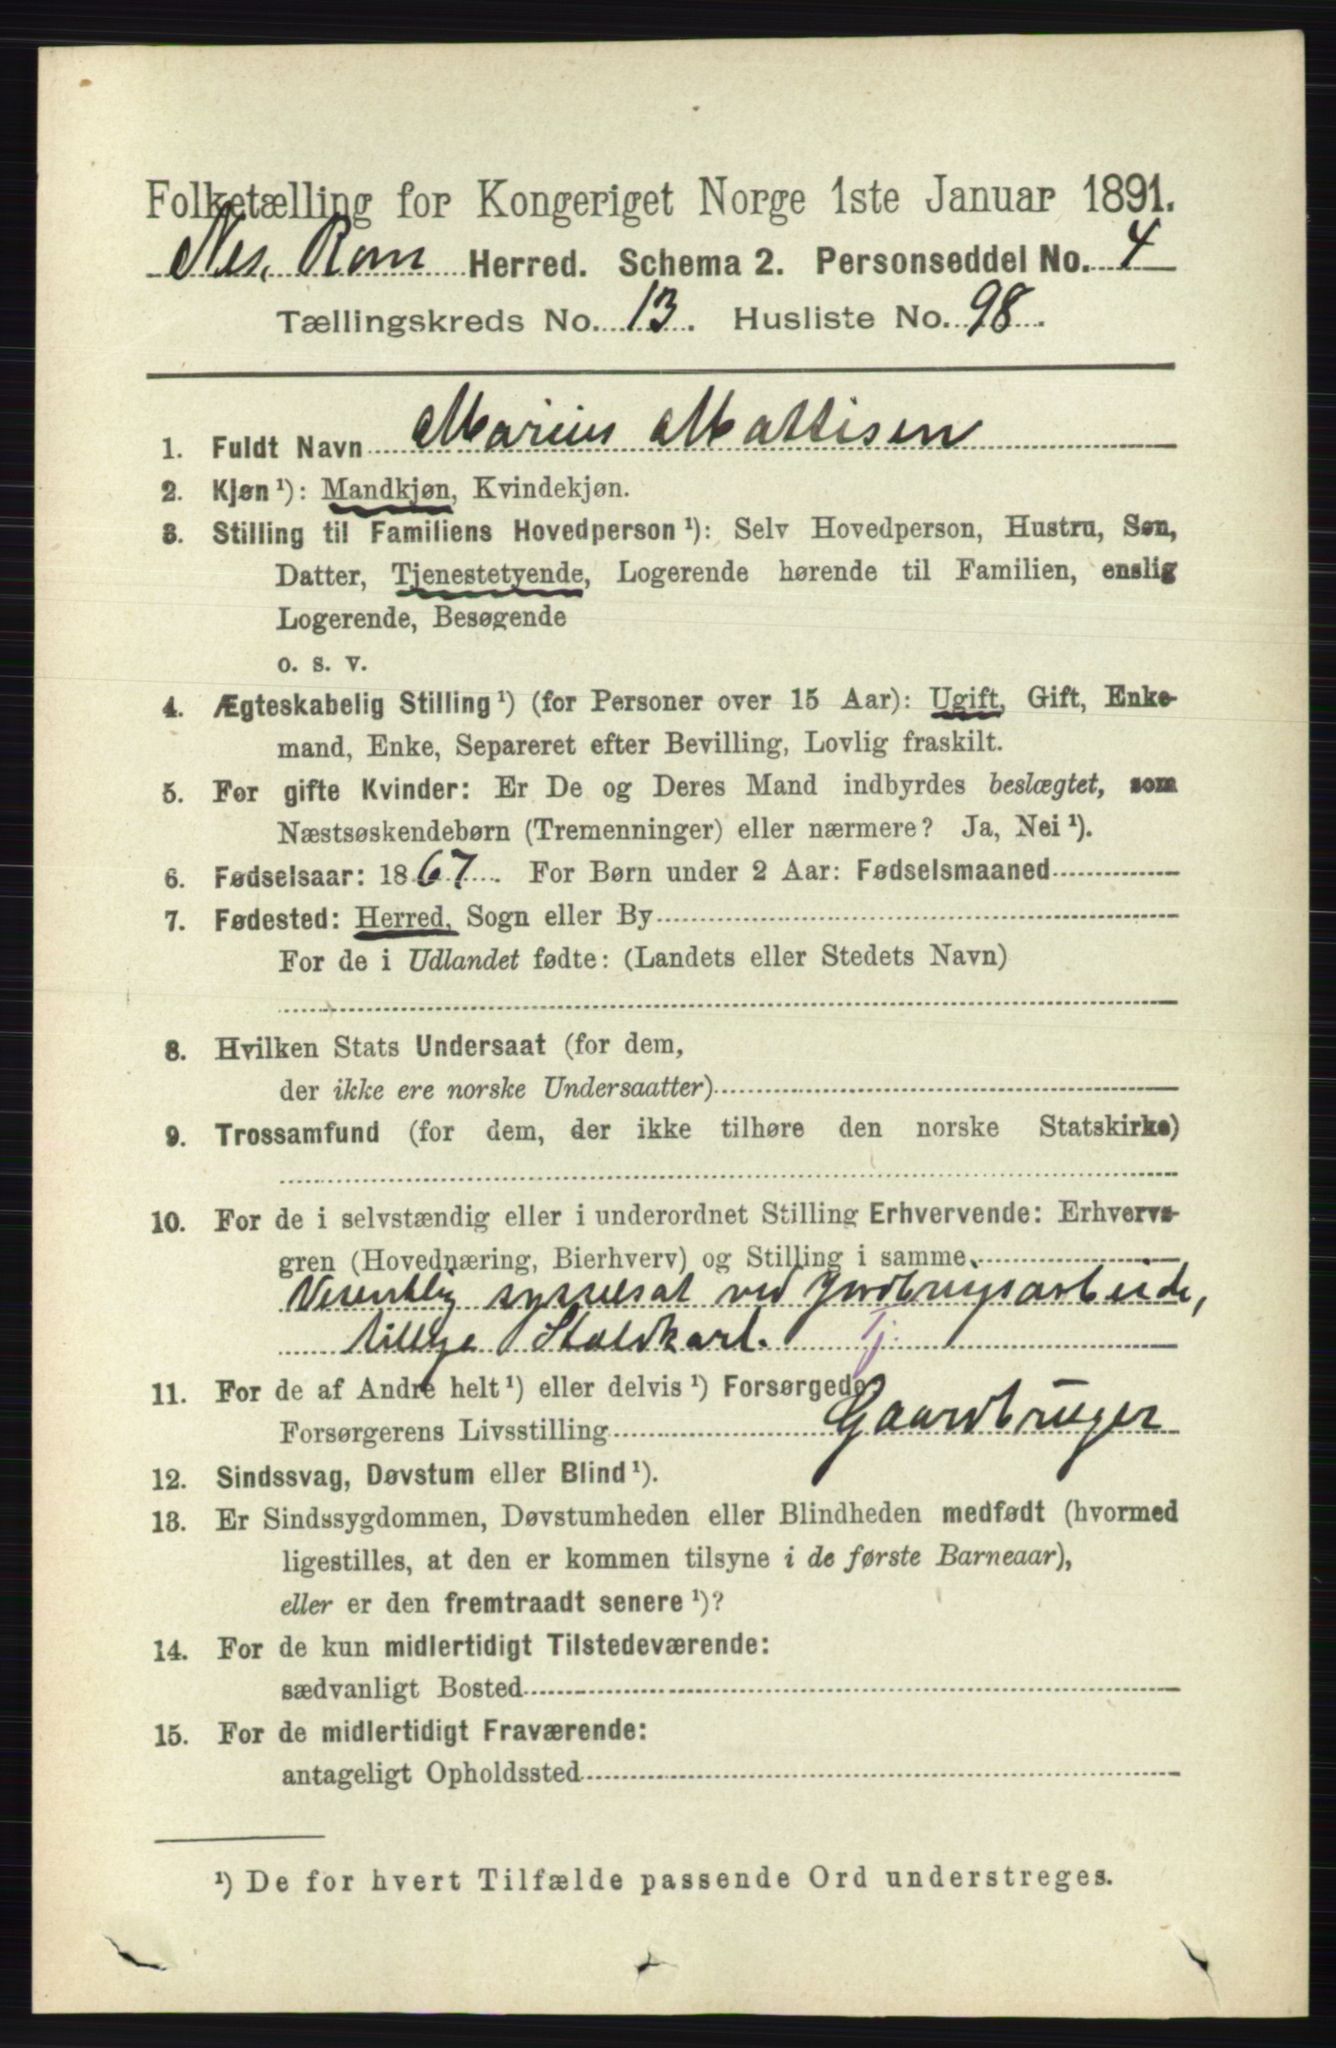 Folketælling for Kongeriget Norge 1ste Januar 1891.
Nes, Rom Herred. Schema 2. Personseddel No. 4
Tællingskreds No. 13. Husliste No. 98.
1. Fuldt Navn Marius Mattisen
2. Kjøn ¹): Mandkjøn, Kvindekjøn.
3. Stilling til Familiens Hovedperson ¹): Selv Hovedperson, Hustru, Søn,
Datter, Tjenestetyende, Logerende hørende til Familien, enslig
Logerende, Besøgende
o. s. v.
4. Ægteskabelig Stilling ¹) (for Personer over 15 Aar): Ugift, Gift, Enke-
mand, Enke, Separeret efter Bevilling, Lovlig fraskilt.
5. For gifte Kvinder: Er De og Deres Mand indbyrdes beslægtet, som
Næstsøskendebørn (Tremenninger) eller nærmere? Ja, Nei ¹).
6. Fødselsaar: 1867. For Børn under 2 Aar: Fødselsmaaned
7. Fødested: Herred, Sogn eller By
For de i Udlandet fødte: (Landets eller Stedets Navn)
8. Hvilken Stats Undersaat (for dem,
der ikke ere norske Undersaatter)
9. Trossamfund (for dem, der ikke tilhøre den norske Statskirke)
10. For de i selvstændig eller i underordnet Stilling Erhvervende: Erhvervs-
gren (Hovednæring, Bierhverv) og Stilling i samme
Vesentlig sysselsat ved Jordbrugsarbeide,
tillige Staldkarl. Tj.
11. For de af Andre helt ¹) eller delvis ¹) Forsørgede
Forsørgerens Livsstilling Gaardbruger
12. Sindssvag, Døvstum eller Blind ¹).
13. Er Sindssygdommen, Døvstumheden eller Blindheden medfødt (hvormed
ligestilles, at den er kommen tilsyne i de første Barneaar),
eller er den fremtraadt senere ¹)?
14. For de kun midlertidigt Tilstedeværende:
sædvanligt Bosted
15. For de midlertidigt Fraværende:
antageligt Opholdssted
¹) De for hvert Tilfælde passende Ord understreges.